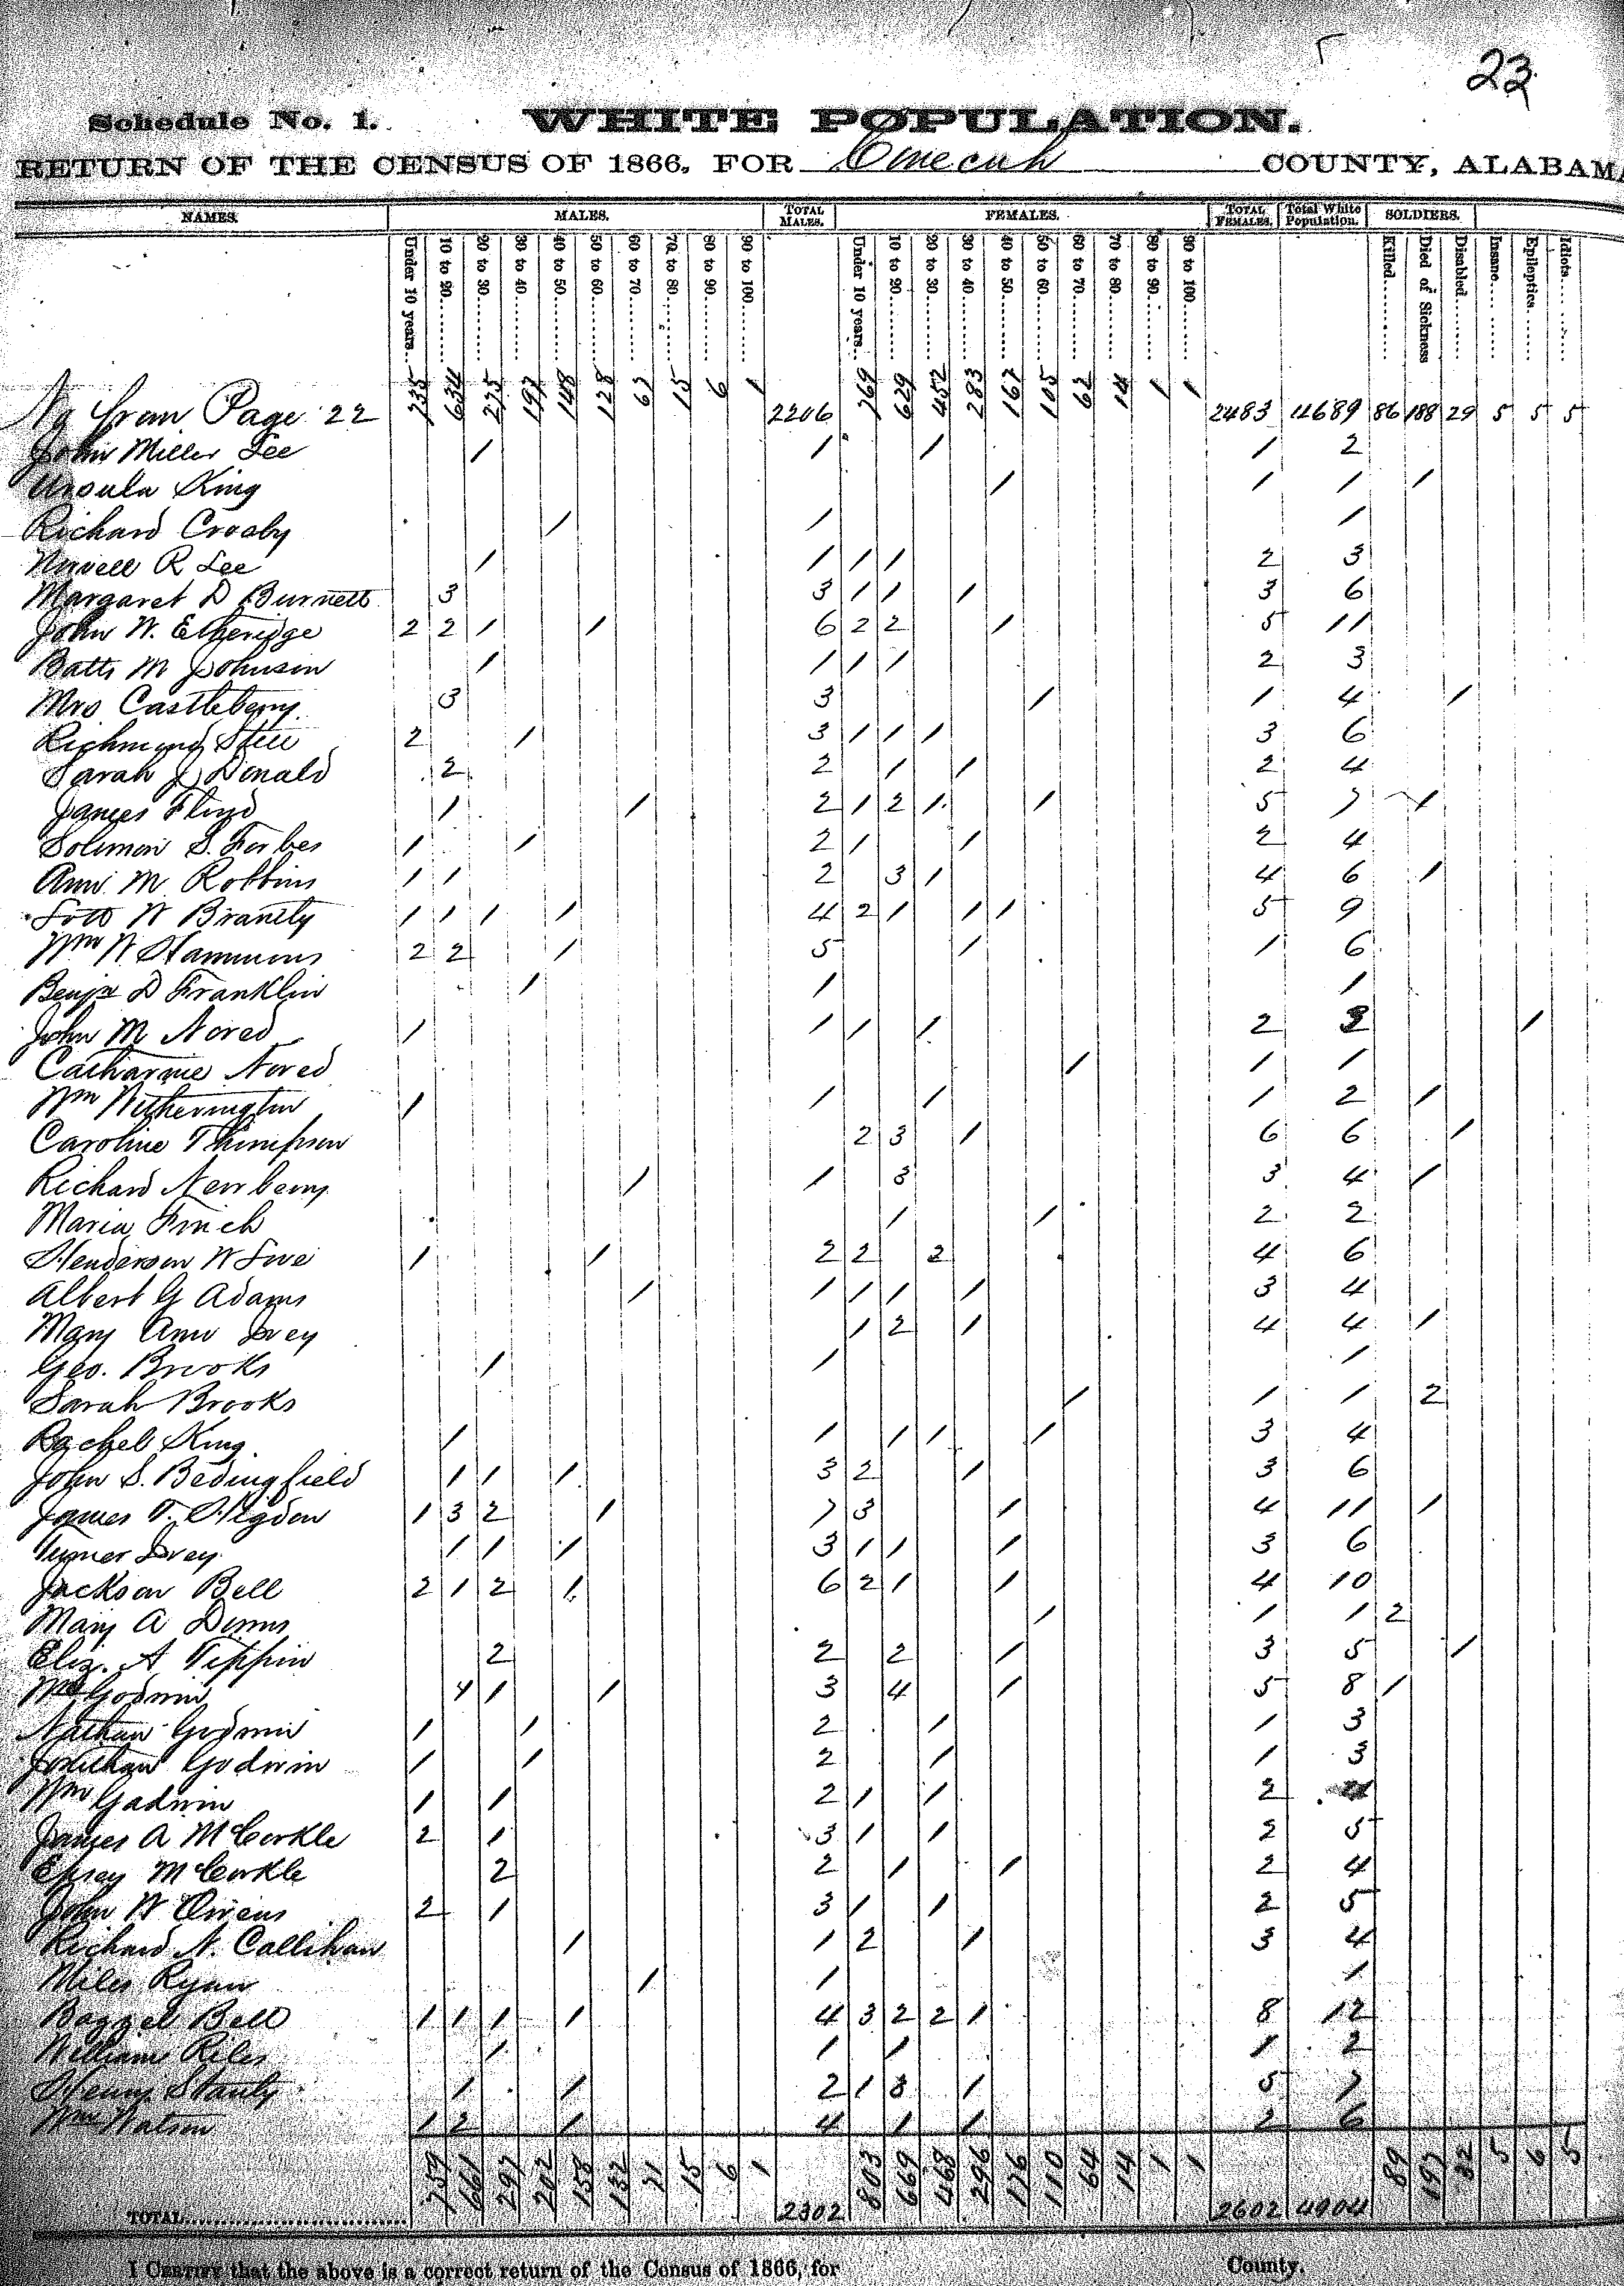 23
Schedule No. 1. WHITE POPULATION.
RETURN OF THE CENSUS OF 1866, FOR Conecuh COUNTY, ALABAMA
NAMES. MALES. TOTAL MALES. FEMALES. TOTAL FEMALES. Total White Population. SOLDIERS.
Under 10 years 10 to 20 20 to 30 30 to 40 40 to 50 50 to 60 60 to 70 70 to 80 80 to 90 90 to 100 Under 10 years 10 to 20 20 to 30 30 to 40 40 to 50 50 to 60 60 to 70 70 to 80 80 to 90 90 to 100 Killed Died of Sickness Disabled Insane Epileptics Idiots
from Page 22 735 634 275 197 148 128 67 15 6 1 2206 769 629 452 283 167 105 62 14 1 1 2483 4689 86 188 29 5 5 5
John Miller Lee 1 1 1 1 2
Ursula King 1 1 1 1
Richard Crosby 1 1 1
R Lee 1 1 1 1 2 3
Margaret D Burnett 3 3 1 1 1 3 6
John W. Etheridge 2 2 1 1 6 2 2 1 5 11
Batts M Johnson 1 1 1 1 2 3
Mrs Castleberry 3 3 1 1 4 1
Richmond 2 1 3 1 1 1 3 6
Sarah J Donald 2 2 1 1 2 4
James Floyd 1 1 2 1 2 1 1 5 7 1
Solimon S. Forbes 1 1 2 1 1 2 4
Ann M Robbins 1 1 2 3 1 4 6 1
W Brantly 1 1 1 1 4 2 1 1 1 5 9
Wm W Hammons 2 2 1 5 1 1 6
Benjn D Franklin 1 1 1
John M Nored 1 1 1 1 2 3 1
Catharine Nored 1 1 1
Wm Witherington 1 1 1 1 2 1
Caroline Thimpson 2 3 1 6 6 1
Richard Newberry 1 1 3 3 4 1
Maria Finch 1 1 2 2
Henderson W Love 1 1 2 2 2 4 6
Albert G Adams 1 1 1 1 1 3 4
Mary Ann Ivey 1 2 1 4 4 1
Geo. Brooks 1 1 1
Sarah Brooks 1 1 1 2
Rachel King 1 1 1 1 1 3 4
John S. Bedingfield 1 1 1 3 2 1 3 6
James T. Higdon 1 3 2 1 7 3 1 4 11 1
Turner Ivey 1 1 1 3 1 1 1 3 6
Jackson Bell 2 1 2 1 6 2 1 1 4 10
Mary A 1 1 1 2
Eliz. A Tippin 2 2 2 1 3 5 1
Godwin 1 1 1 3 4 1 5 8 1
Nathan Godwin 1 1 2 1 1 3
Jonathan Godwin 1 1 2 1 1 3
Wm Godwin 1 1 2 1 1 2 4
James A McCorkle 2 1 3 1 1 2 5
McCorkle 2 2 1 1 2 4
John W Owens 2 1 3 1 1 2 5
Richard N. Callihan 1 1 2 1 3 4
Miles Ryan 1 1 1
Bell 1 1 1 1 4 3 2 2 1 8 12
William Riley 1 1 1 1 2
Henry Stanly 1 1 2 1 3 1 5 7
Wm Watson 1 2 1 4 1 1 2 6
TOTAL 759 661 297 202 158 132 71 15 6 1 2302 803 669 468 296 176 110 64 14 1 1 2602 4904 89 197 32 5 6 5
I CERTIFY that the above is a correct return of the Census of 1866, for County.